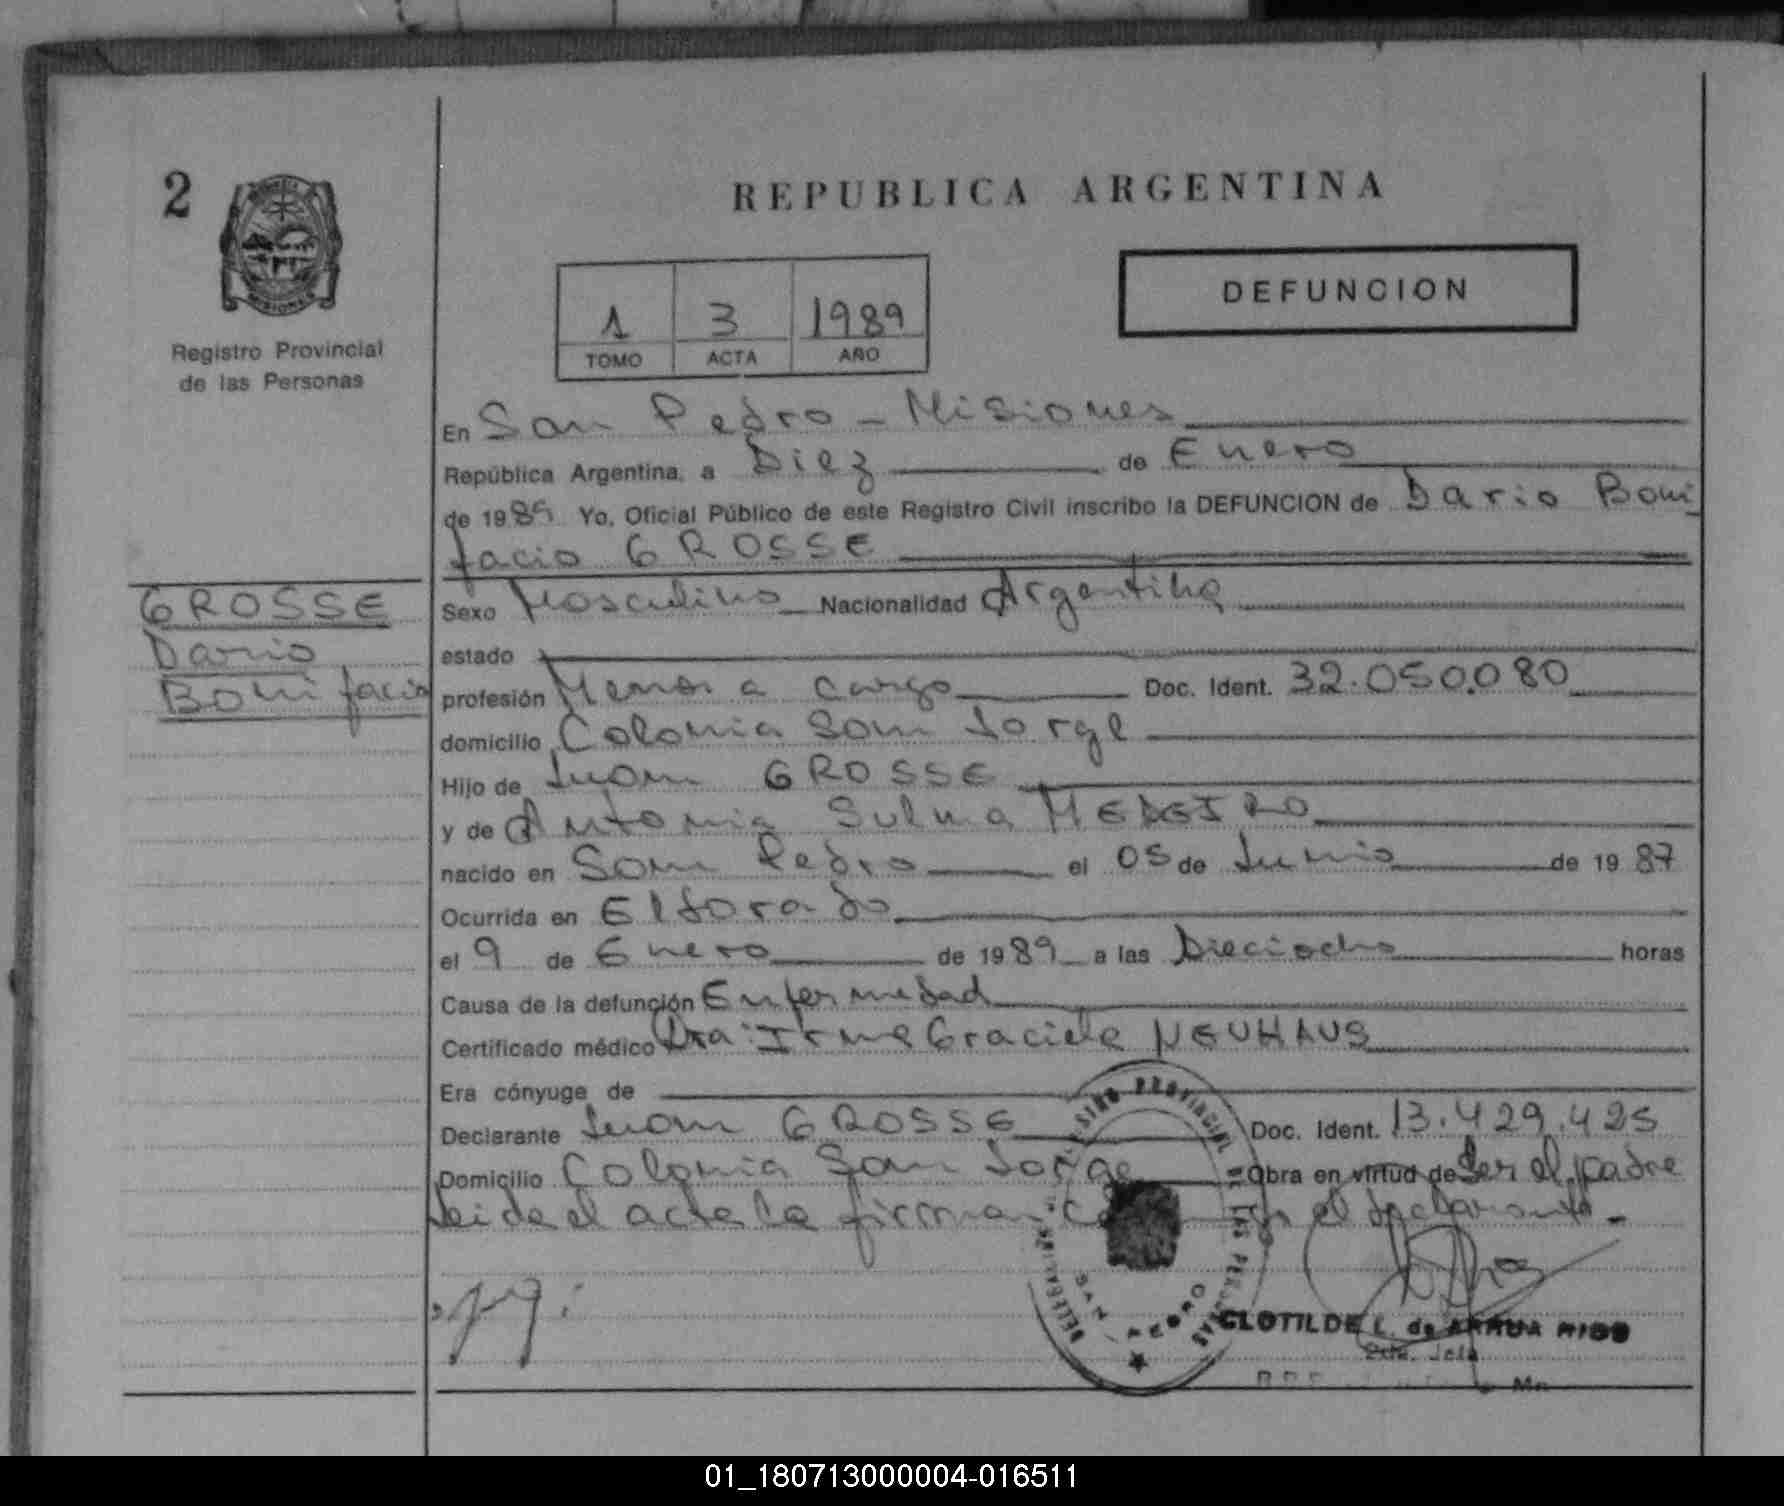 2
REPUBLICA ARGENTINA
DEFUNCION
1 3 1989
TOMO ACTA AÑO
Registro Provincial
de las Personas
En San Pedro - Misiones
República Argentina, a Diez de Enero
de 1989 Yo, Oficial Público de este Registro Civil inscribo la DEFUNCION de Dario Boni
facio GROSSE
GROSSE
Dario
Bonifacio
Sexo Masculino Nacionalidad Argentina
estado
profesión Menor a cargo Doc. Ident. 32.050.080
domicilio Colonia San Jorge
Hijo de Juan GROSSE
y de Antonia Sulma MEDEIRO
nacido en San Pedro el 05 de Junio de 1987
Ocurrida en Eldorado
el 9 de Enero de 1989 a las Dieciocho horas
Causa de la defunción Enfermedad
Certificado médico Dra: Irma Graciela NEUHAUS
Era cónyuge de
Declarante Juan GROSSE Doc. Ident. 13.429.425
Domicilio Colonia San Jorge Obra en virtud de Ser el padre
Leida el acta la firman el declarante.-
PROVINCIAL DE LAS PERSONAS
SAN PEDRO
CLOTILDE L. de ARRUA RIOS
01_180713000004-016511